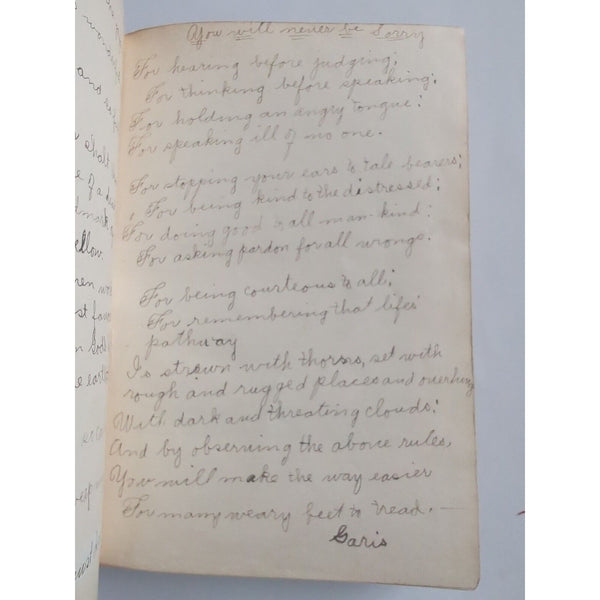 You will never be Sorry
For hearing before judging;
For thinking before speaking;
For holding an angry tongue;
For speaking ill of no one.
For stopping your ears to tale bearers;
For being kind to the distressed;
For doing good to all man-kind;
For asking pardon for all wrongs.
For being courteous to all;
For remembering that lifes'
pathway
Is strown with thorns, set with
rough and rugged places and overhung
With dark and threating clouds;
And by observing the above rules,
You will make the way easier
For many weary feet to tread. —
Garis